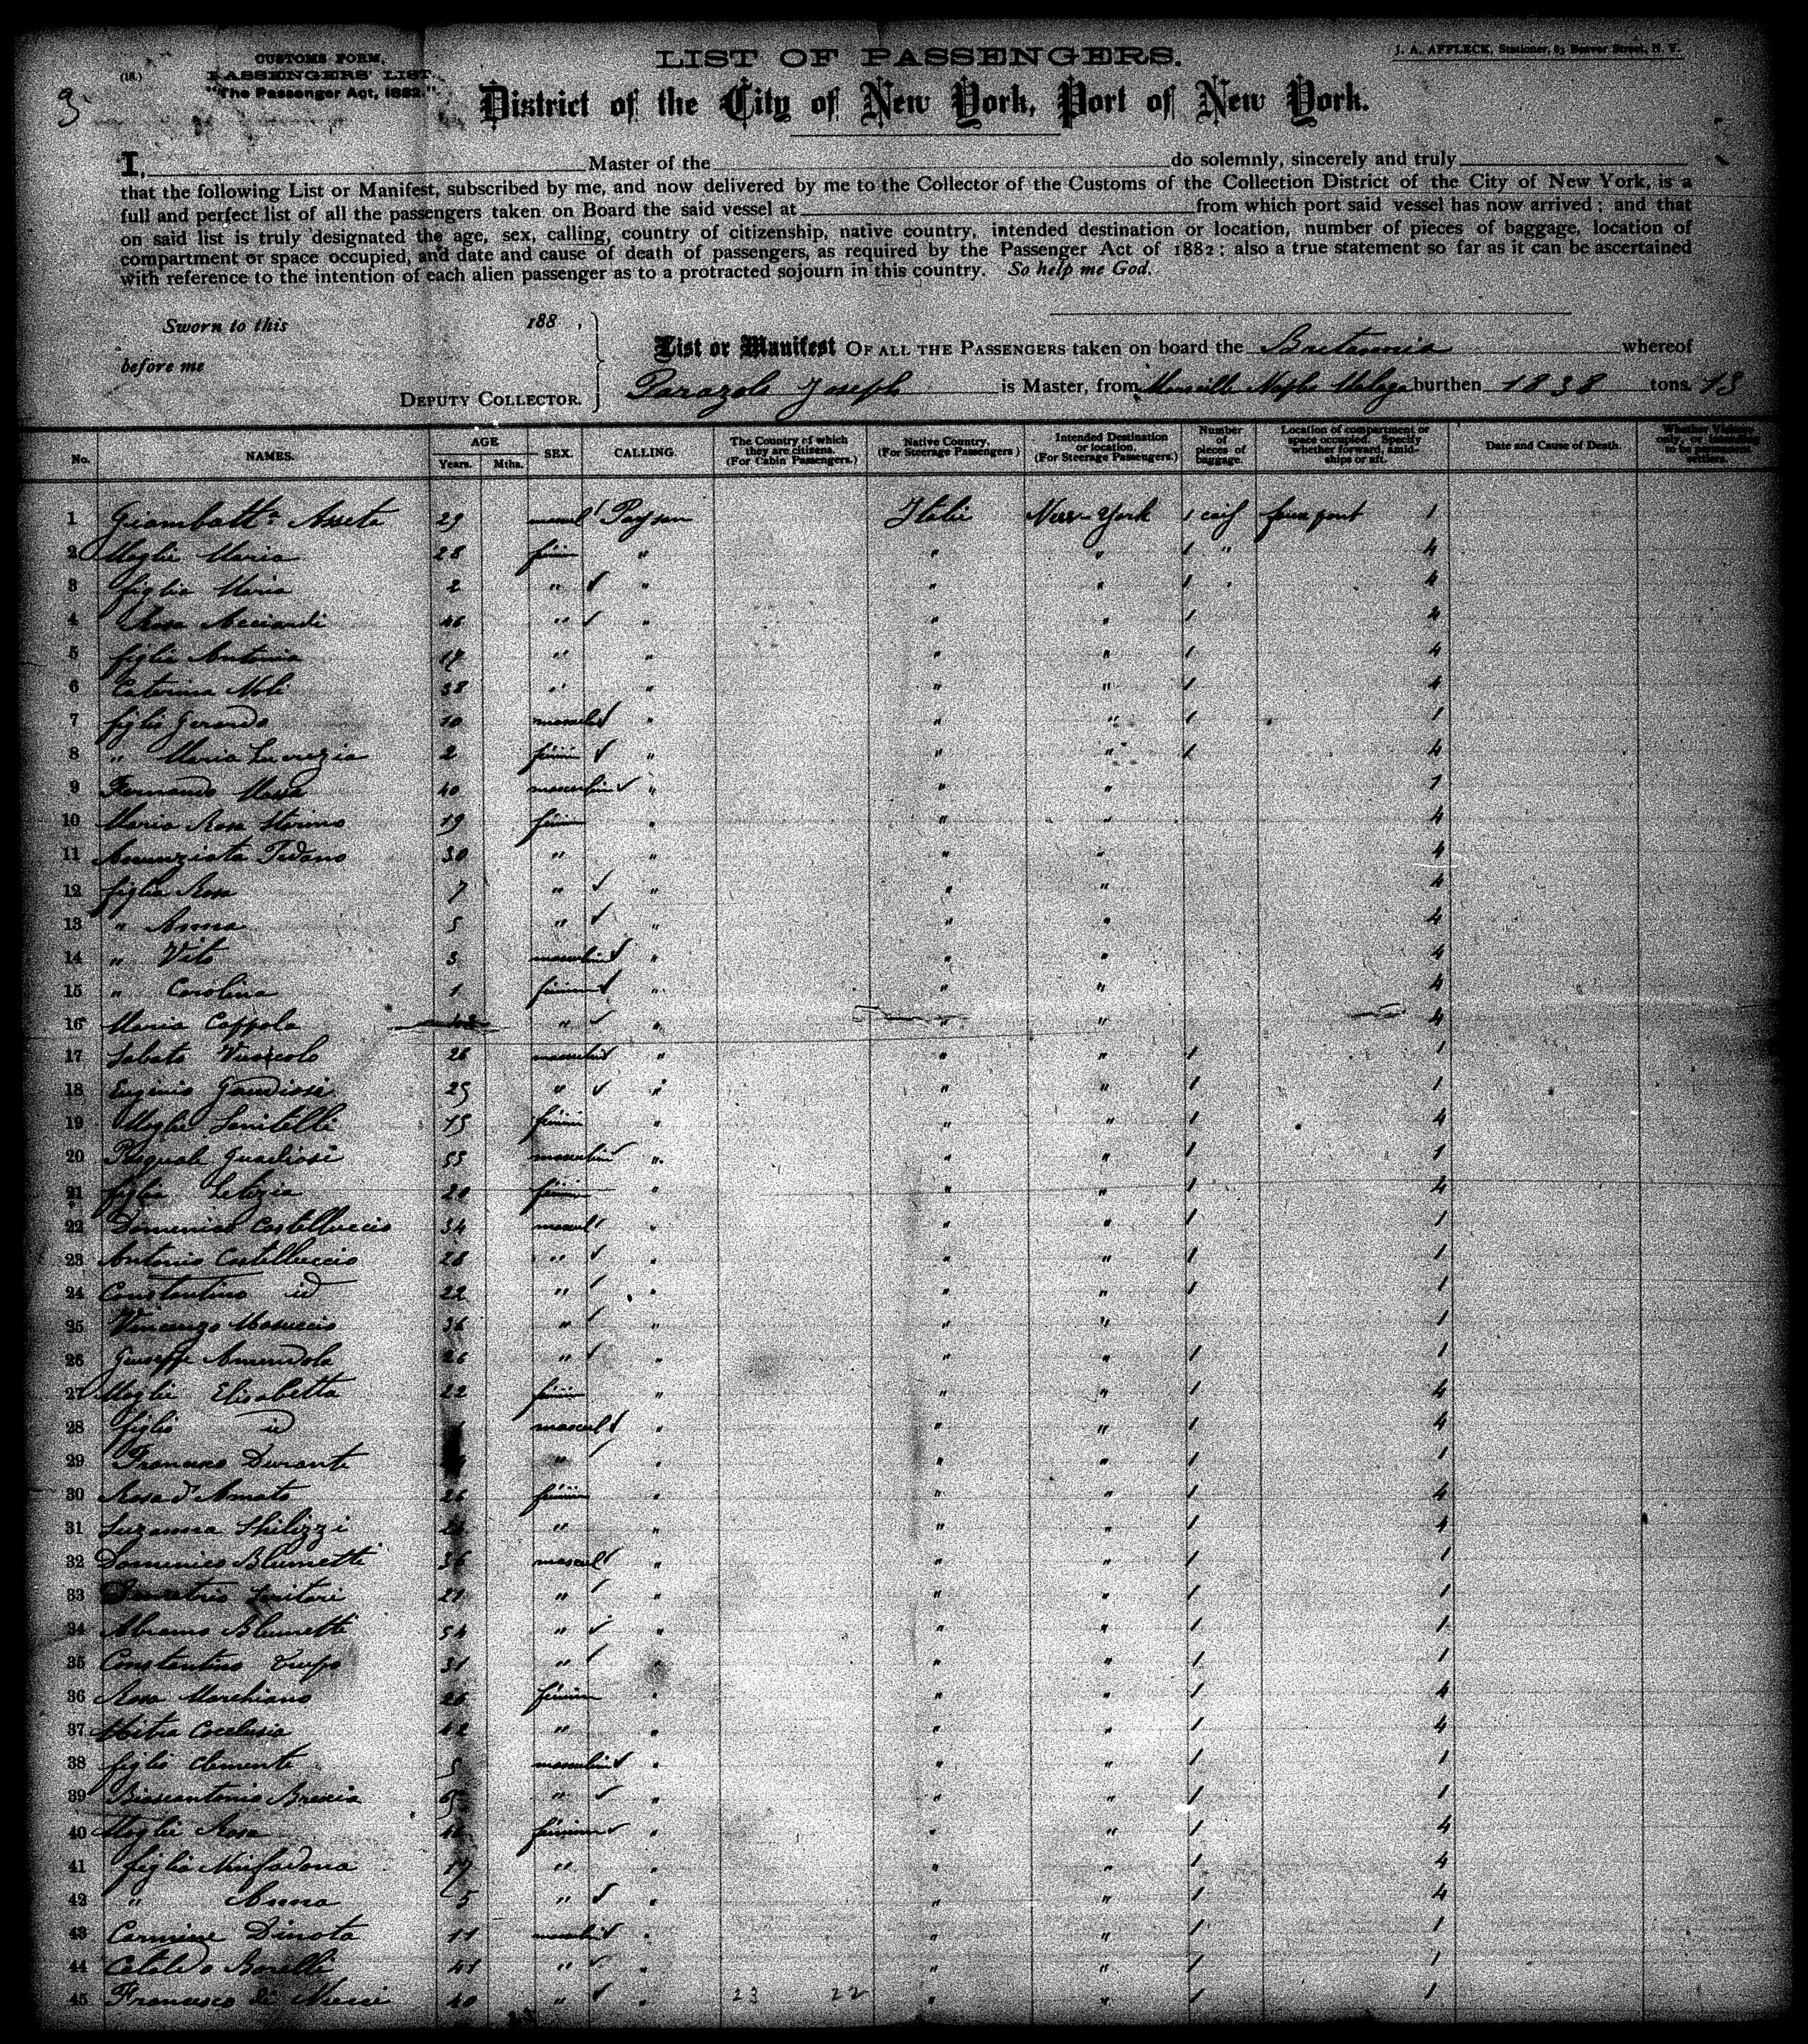 CUSTOMS FORM,
(18.) PASSENGERS' LIST.
"The Passenger Act, 1882."
3
LIST OF PASSENGERS.
J. A. AFFLECK, Stationer, 83 Beaver Street, N. Y.
District of the City of New York, Port of New York.
I, Master of the do solemnly, sincerely and truly
that the following List or Manifest, subscribed by me, and now delivered by me to the Collector of the Customs of the Collection District of the City of New York, is a
full and perfect list of all the passengers taken on Board the said vessel at from which port said vessel has now arrived; and that
on said list is truly designated the age, sex, calling, country of citizenship, native country, intended destination or location, number of pieces of baggage, location of
compartment or space occupied, and date and cause of death of passengers, as required by the Passenger Act of 1882; also a true statement so far as it can be ascertained
with reference to the intention of each alien passenger as to a protracted sojourn in this country. So help me God.
Sworn to this 188 ,
before me
DEPUTY COLLECTOR.
List or Manifest OF ALL THE PASSENGERS taken on board the Britannia whereof
Parazols Joseph is Master, from Marseille Naples Malaga burthen 1838 tons. 13
No. NAMES. AGE Years. Mths. SEX. CALLING. The Country of which they are citizens. (For Cabin Passengers.) Native Country, (For Steerage Passengers) Intended Destination or location, (For Steerage Passengers.) Number of pieces of baggage. Location of compartment or space occupied. Specify whether forward, amidships or aft. Date and Cause of Death. Whether Visitors only, or intending to be permanent settlers.
1 Giambatt.a Asseta 29 mascul Paysan Italie New-York 1 1
2 Moglie Maria 28 fémin " " " 1 " 4
3 figlia Maria 2 " " " " 1 " 4
4 Rosa Ricciardi 46 " " " " 1 4
5 figlia Antonia 17 " " " " 1 4
6 Caterina Noli 38 " " " " 1 4
7 figlio Gerardo 10 masculin " " " 1 1
8 " Maria Lucrezia 2 fémin " " " 1 4
9 Fernando Massa 40 masculin " " " 1
10 Maria Rosa 19 fémin " " " 4
11 Annunziata Tedano 30 " " " " 4
12 figlia Rosa 7 " " " " 4
13 " Anna 5 " " " " 4
14 " Vito 3 masculin " " " 4
15 " Carolina 1 féminin " " " 4
16 Maria Coppola " " " " 4
17 Sabato 26 masculin " " " 1 1
18 Eugenio Gaudiosi 25 " " " " 1 1
19 Moglie 15 fémin " " " 1 4
20 Pasquale Guadiosi 55 masculin " " " 1 1
21 figlia Letizia 20 fémin " " " 1 4
22 Domenico Castelluccio 34 mascul " " " 1 1
23 Antonio Castelluccio 28 " " " " 1 1
24 Constantino id 22 " " " " 1 1
25 Vincenzo Masuccio 36 " " " " 1 1
26 Giuseppe Amendola 26 " " " " 1 1
27 Moglie Elisabetta 22 fémin " " " 1 4
28 figlio id mascul " " " 1 4
29 Francesco Durante " " " " 1 1
30 Rosa d'Amato 26 fémin " " " 1 4
31 Suzanna " " " " 1 4
32 Domenico Blumetti 36 mascul " " " 1 1
33 21 " " " " 1 1
34 Abramo Blumetti 54 " " " " 1 1
35 Constantino 31 " " " " 1 1
36 Rosa Marchiano 26 fémin " " " 1 4
37 42 " " " " 1 4
38 figlio Clemente 5 masculin " " " 1 1
39 Biaseantonio Brescia " " " " 1 1
40 Moglie Rosa féminin " " " 1 4
41 figlia 17 " " " " 1 4
42 " Anna 5 " " " " 1 4
43 Carmine Dinota 11 masculin " " " 1 1
44 Cataldo Borelli 41 " " " " 1 1
45 Francesco di 40 " " 23 22 " " 1 1